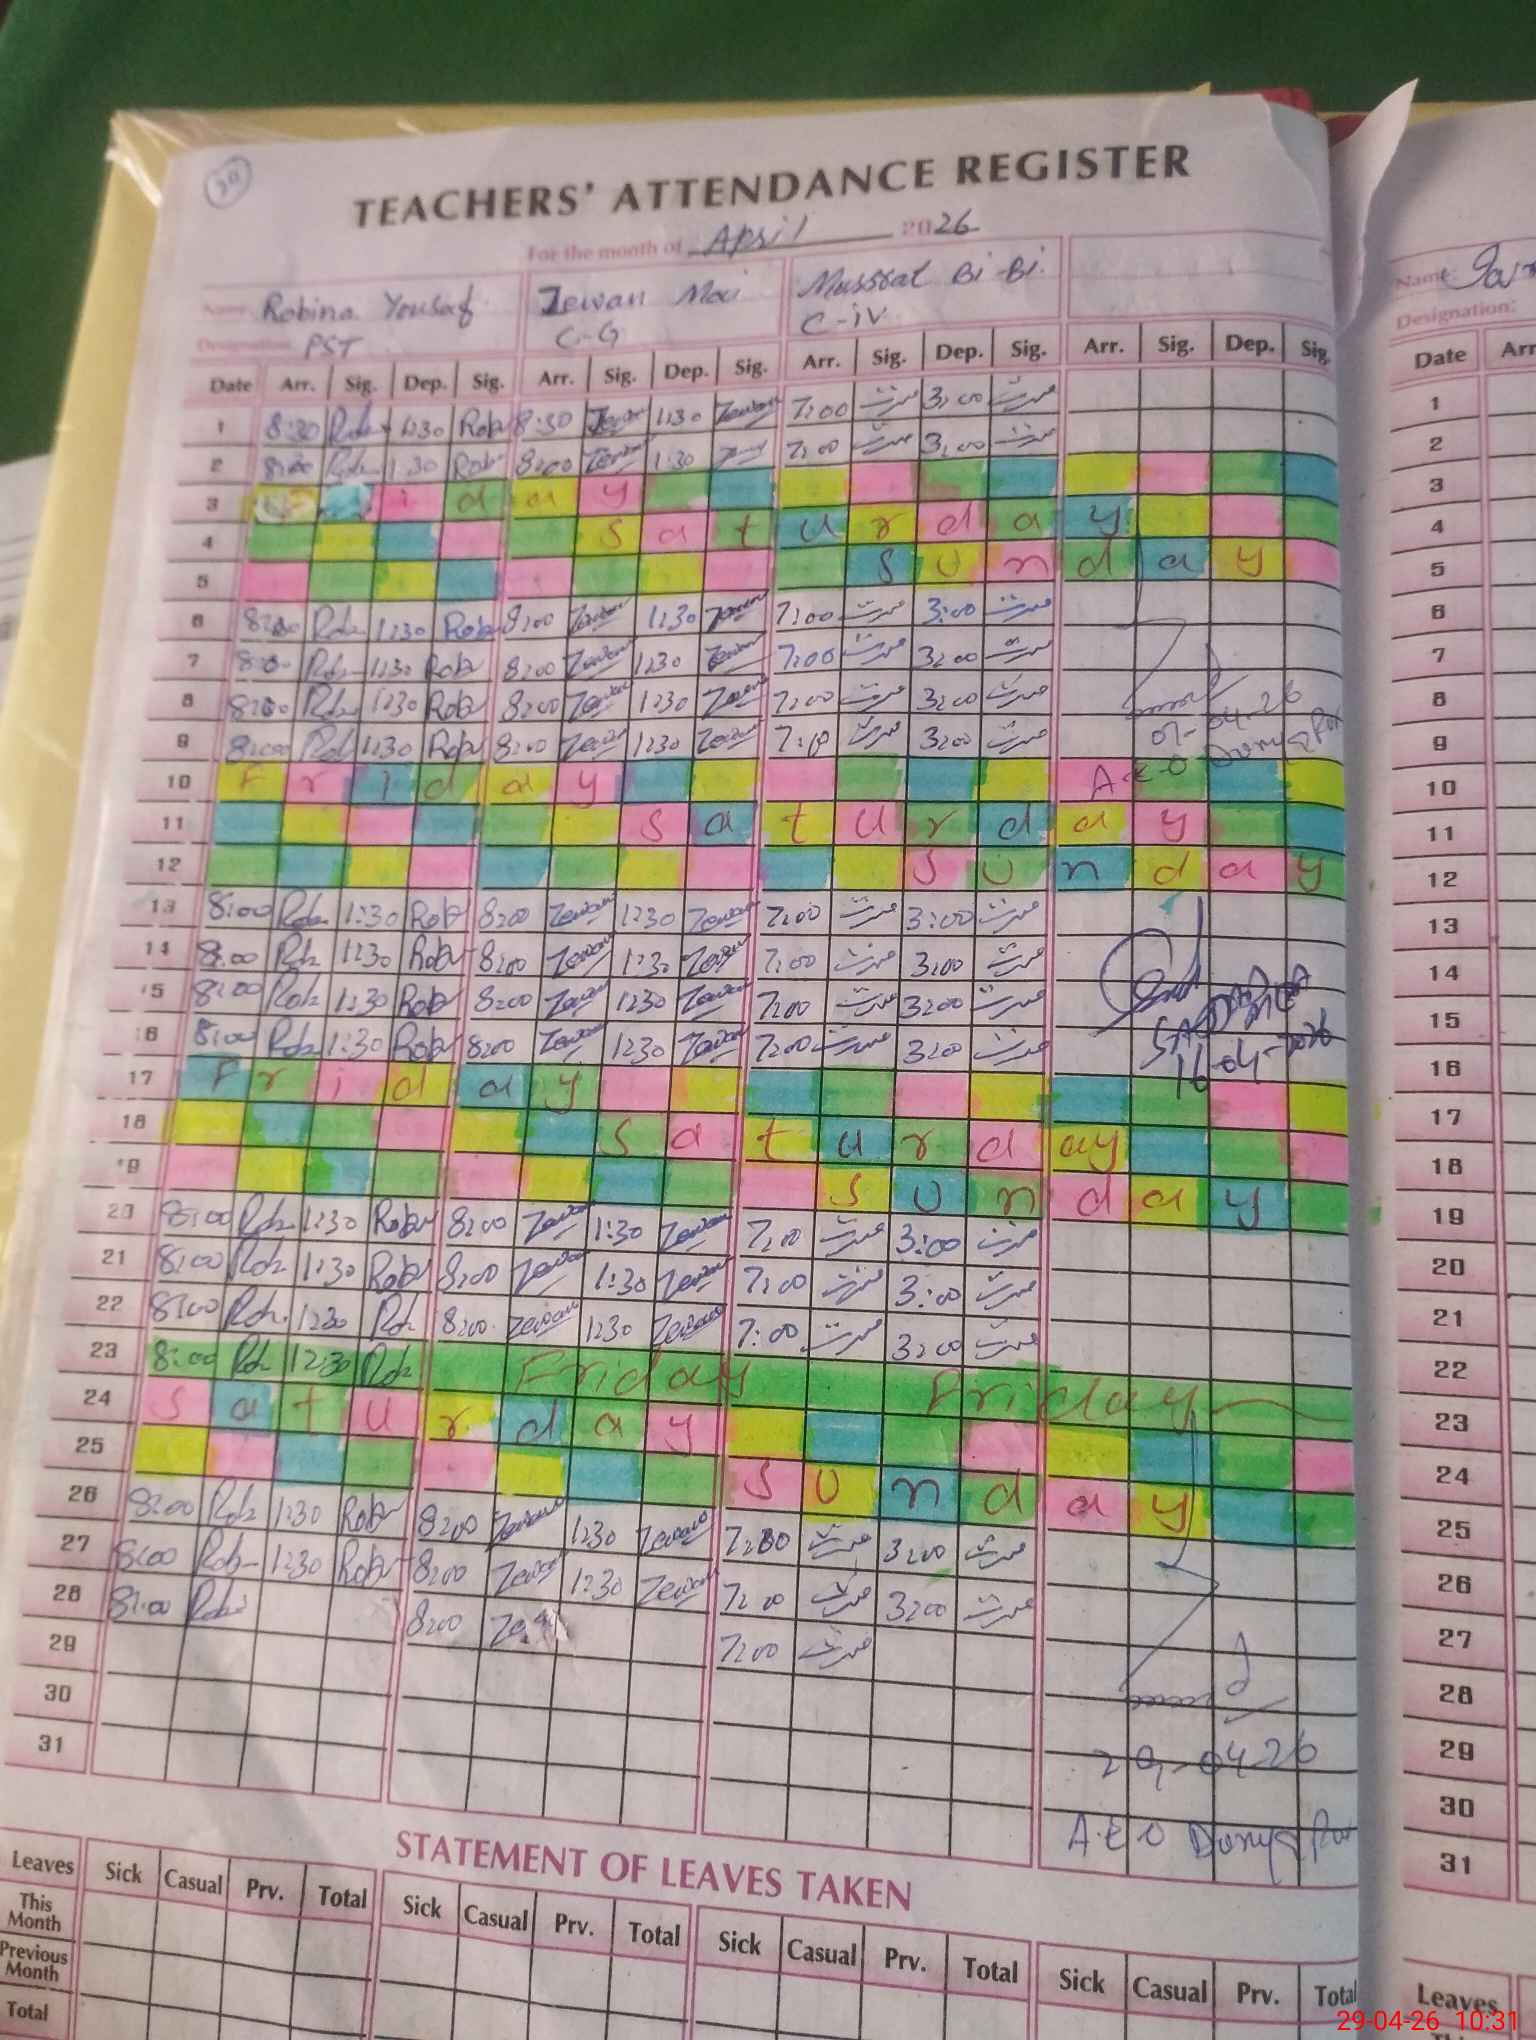 30
TEACHERS' ATTENDANCE REGISTER
For the month of April 2026
Name: Robina Yousaf Zewan Mai Mussrat Bi-Bi.
Designation: PST C-G C-iv
Date Arr. Sig. Dep. Sig. Arr. Sig. Dep. Sig. Arr. Sig. Dep. Sig. Arr. Sig. Dep. Sig.
1 8:30 Rob 1:30 Rob 8:30 Zewan 1:30 Zewan 7:00 مسرت 3:00 مسرت
2 8:00 Rob 1:30 Rob 8:00 Zewan 1:30 Zewan 7:00 مسرت 3:00 مسرت
3 i d a y
4 S a t u r d a y
5 S u n d a y
6 8:00 Rob 1:30 Rob 8:00 Zewan 1:30 Zewan 7:00 مسرت 3:00 مسرت
7 8:00 Rob 1:30 Rob 8:00 Zewan 1:30 Zewan 7:00 مسرت 3:00 مسرت
8 8:00 Rob 1:30 Rob 8:00 Zewan 1:30 Zewan 7:00 مسرت 3:00 مسرت
9 8:00 Rob 1:30 Rob 8:00 Zewan 1:30 Zewan 7:00 مسرت 3:00 مسرت
07-04-26
A.E.O
10 F r i d a y
11 S a t u r d a y
12 S u n d a y
13 8:00 Rob 1:30 Rob 8:00 Zewan 1:30 Zewan 7:00 مسرت 3:00 مسرت
14 8:00 Rob 1:30 Rob 8:00 Zewan 1:30 Zewan 7:00 مسرت 3:00 مسرت
15 8:00 Rob 1:30 Rob 8:00 Zewan 1:30 Zewan 7:00 مسرت 3:00 مسرت
16 8:00 Rob 1:30 Rob 8:00 Zewan 1:30 Zewan 7:00 مسرت 3:00 مسرت
16-04-2026
17 F r i d a y
18 S a t u r d a y
19 S u n d a y
20 8:00 Rob 1:30 Rob 8:00 Zewan 1:30 Zewan 7:00 مسرت 3:00 مسرت
21 8:00 Rob 1:30 Rob 8:00 Zewan 1:30 Zewan 7:00 مسرت 3:00 مسرت
22 8:00 Rob 1:30 Rob 8:00 Zewan 1:30 Zewan 7:00 مسرت 3:00 مسرت
23 8:00 Rob 12:30 Rob Friday Friday
24 S a t u r d a y
25 S u n d a y
26 8:00 Rob 1:30 Rob 8:00 Zewan 1:30 Zewan 7:00 مسرت 3:00 مسرت
27 8:00 Rob 1:30 Rob 8:00 Zewan 1:30 Zewan 7:00 مسرت 3:00 مسرت
28 8:00 Rob 8:00 7:00 مسرت
29
30
31
29-04-26
A.E.O
STATEMENT OF LEAVES TAKEN
Leaves Sick Casual Prv. Total Sick Casual Prv. Total Sick Casual Prv. Total Sick Casual Prv. Total
This Month
Previous Month
Total
Name:
Designation:
Date Arr
1
2
3
4
5
6
7
8
9
10
11
12
13
14
15
16
17
18
19
20
21
22
23
24
25
26
27
28
29
30
31
Leaves
29-04-26 10:31